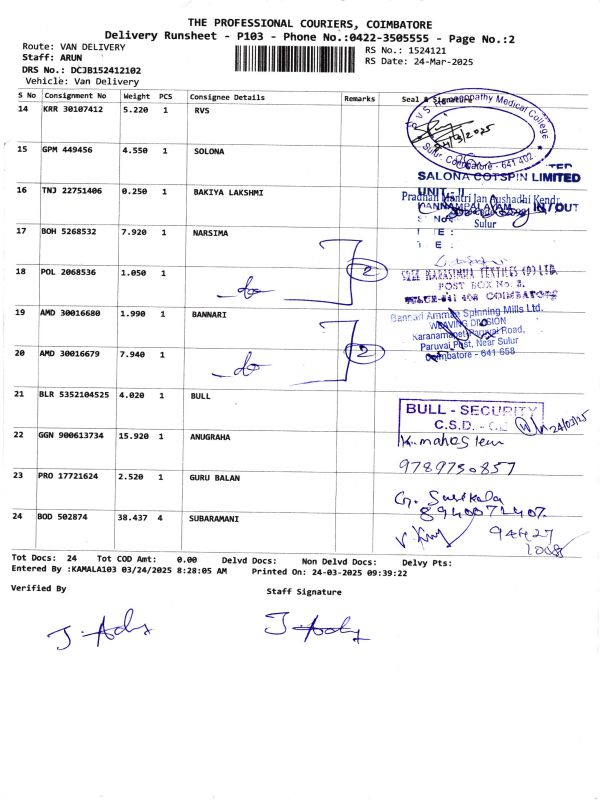 THE PROFESSIONAL COURIERS, COIMBATORE
Delivery Runsheet - P103 - Phone No.:0422-3505555 - Page No.:2
Route: VAN DELIVERY
RS No.: 1524121
Staff: ARUN
RS Date: 24-Mar-2025
DRS No.: DCJB152412102
Vehicle: Van Delivery
S No Consignment No Weight PCS Consignee Details Remarks Seal & Signature
14 KRR 30107412 5.220 1 RVS
R.V.S. Homoeopathy Medical College
24/3/2025
Sulur, Coimbatore - 641 402
15 GPM 449456 4.550 1 SOLONA
SALONA COTSPIN LIMITED
UNIT - II
PANNAMPALAYAM IN/OUT
16 TNJ 22751406 0.250 1 BAKIYA LAKSHMI
Pradhan Mantri Jan Aushadhi Kendr
Sulur
17 BOH 5268532 7.920 1 NARSIMA
18 POL 2068536 1.050 1
do 2
SREE NARASIMHA TEXTILES (P) LTD.
POST BOX No. 3.
SULUR-641 402 COIMBATORE
19 AMD 30016680 1.990 1 BANNARI
20 AMD 30016679 7.940 1
do 2
Bannari Amman Spinning Mills Ltd.
WEAVING DIVISION
Karanampet-Paruvai Road,
Paruvai Post, Near Sulur
Coimbatore - 641 658
21 BLR 5352104525 4.020 1 BULL
BULL - SECURITY
C.S.D.
24/03/25
22 GGN 900613734 15.920 1 ANUGRAHA
9789750857
23 PRO 17721624 2.520 1 GURU BALAN
24 BOD 502874 38.437 4 SUBARAMANI
94427
Tot Docs: 24 Tot COD Amt: 0.00 Delvd Docs: Non Delvd Docs: Delvy Pts:
Entered By :KAMALA103 03/24/2025 8:28:05 AM Printed On: 24-03-2025 09:39:22
Verified By
Staff Signature